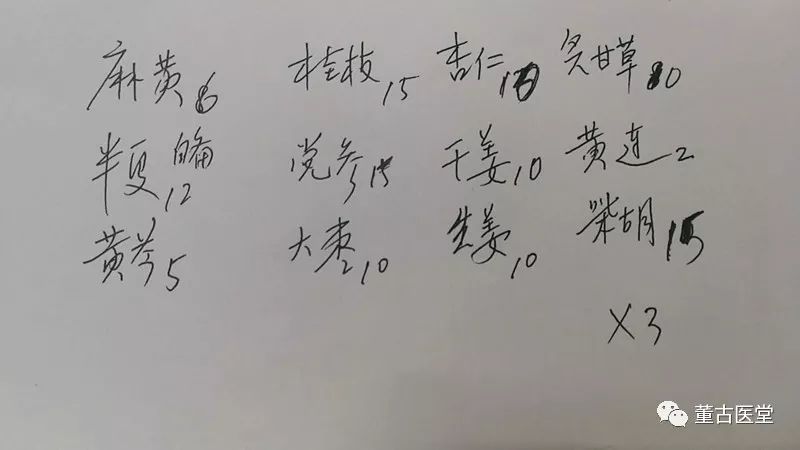 麻黄6 桂枝15 杏仁10 炙甘草10
半夏自备12 党参15 干姜10 黄连2
黄芩5 大枣10 生姜10 柴胡15
×3
董古医堂